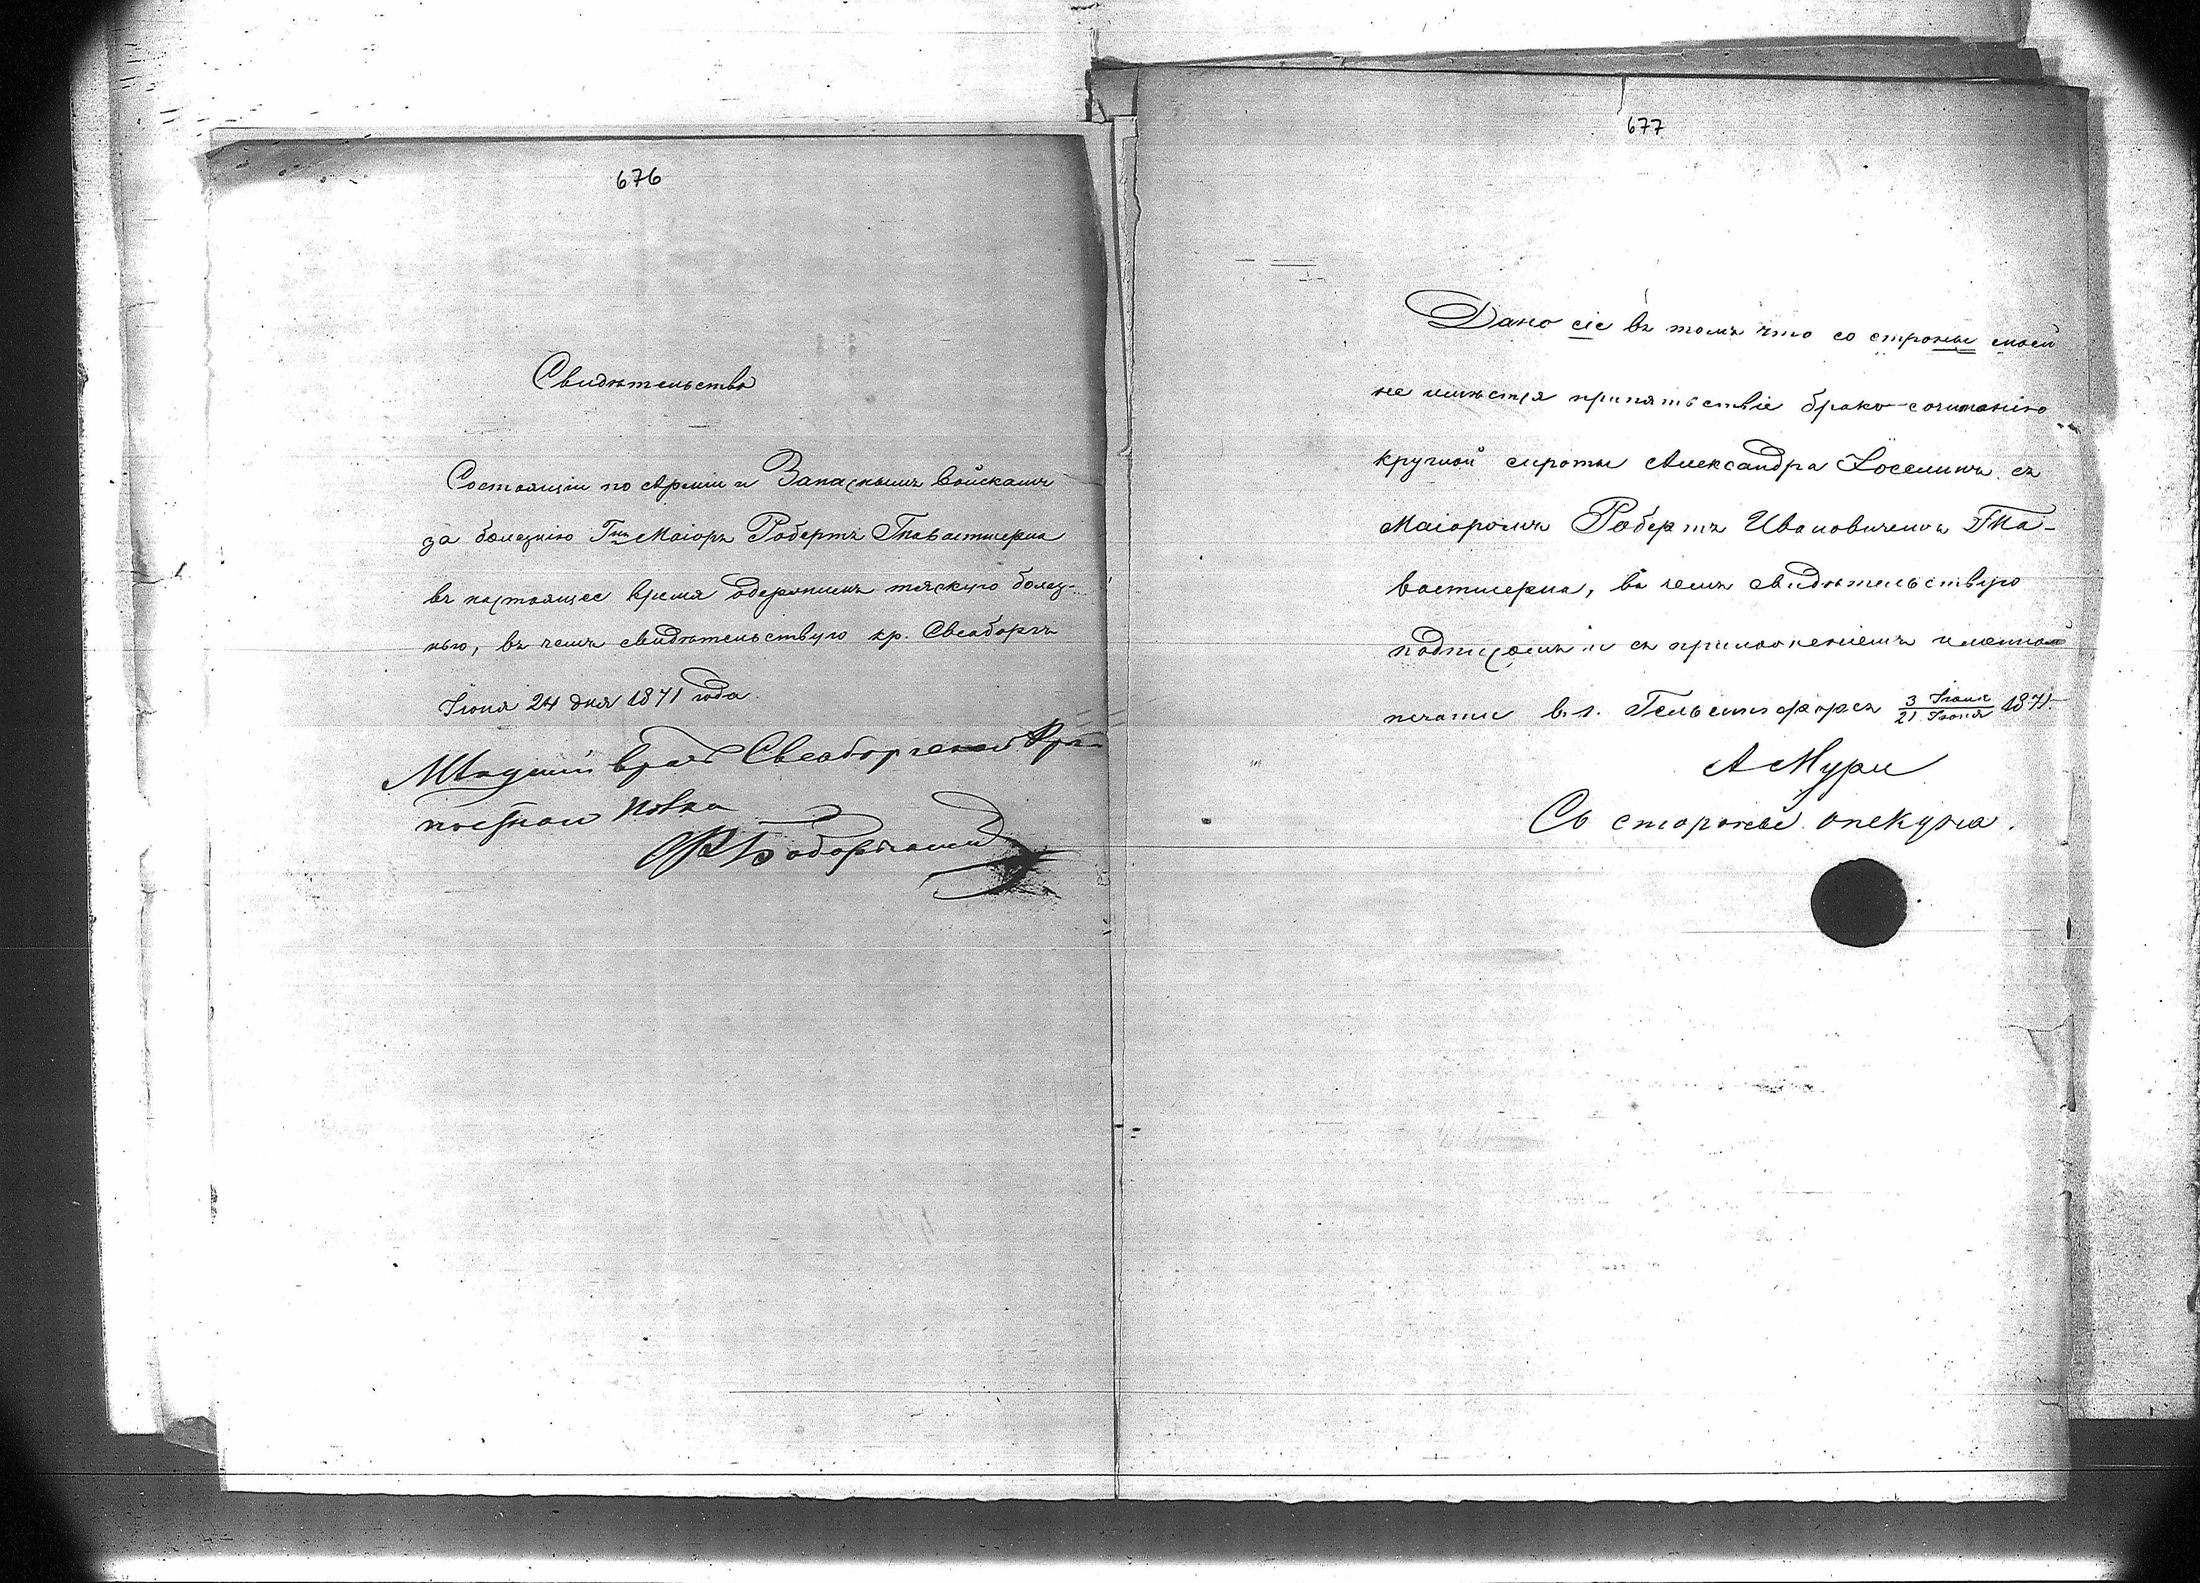 676
Свидѣтельство
Состоящій по Арміи и Запаснымъ Войскамъ
за болезнію Гнъ Маіоръ Робертъ Тавастшерна
въ настоящее время одержимъ тяжкую болез-
нью, въ чемъ свидѣтельствую кр. Свеаборгъ
Іюня 24 дня 1871 года.
Младшій врачъ Свеаборгской Крѣ-
постнаго полка
677
Дано сіе въ томъ что со строны моей
не имѣется припятьствіе брако-сочитанію
круглой сироты Александра Іоселинъ съ
Маіоромъ Робертъ Ивановичемъ Та-
вастшерна, въ чемъ свидѣтельствую
подписомъ и съ приложеніемъ именной
печати в. г. Гельсингфорсъ 3 Іюля / 21 Іюня 1871.
А Мури
Со стороные опекуна.